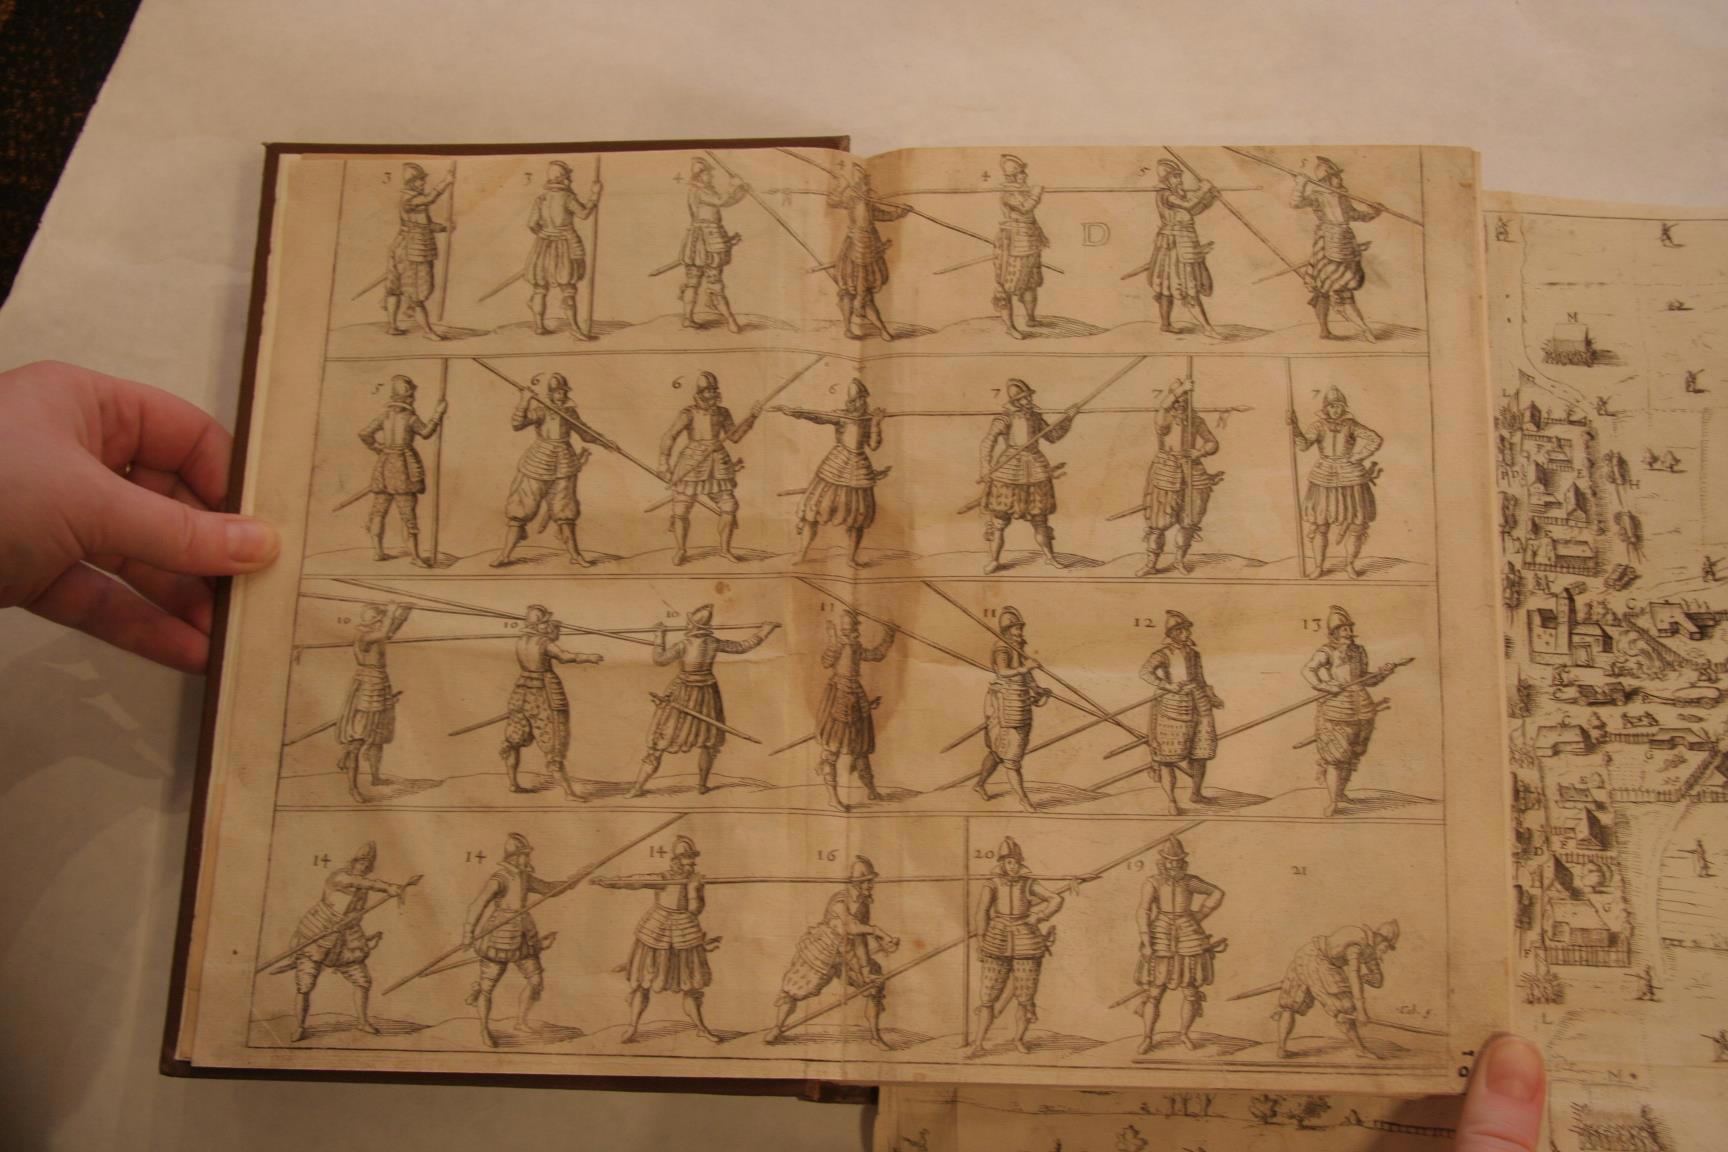 3 3 4 4 4 5 5
D
5 6 6 6 7 7 7
10 10 10 11 11 12 13
14 14 14 16 20 19 21
M
H
C
G
L
N